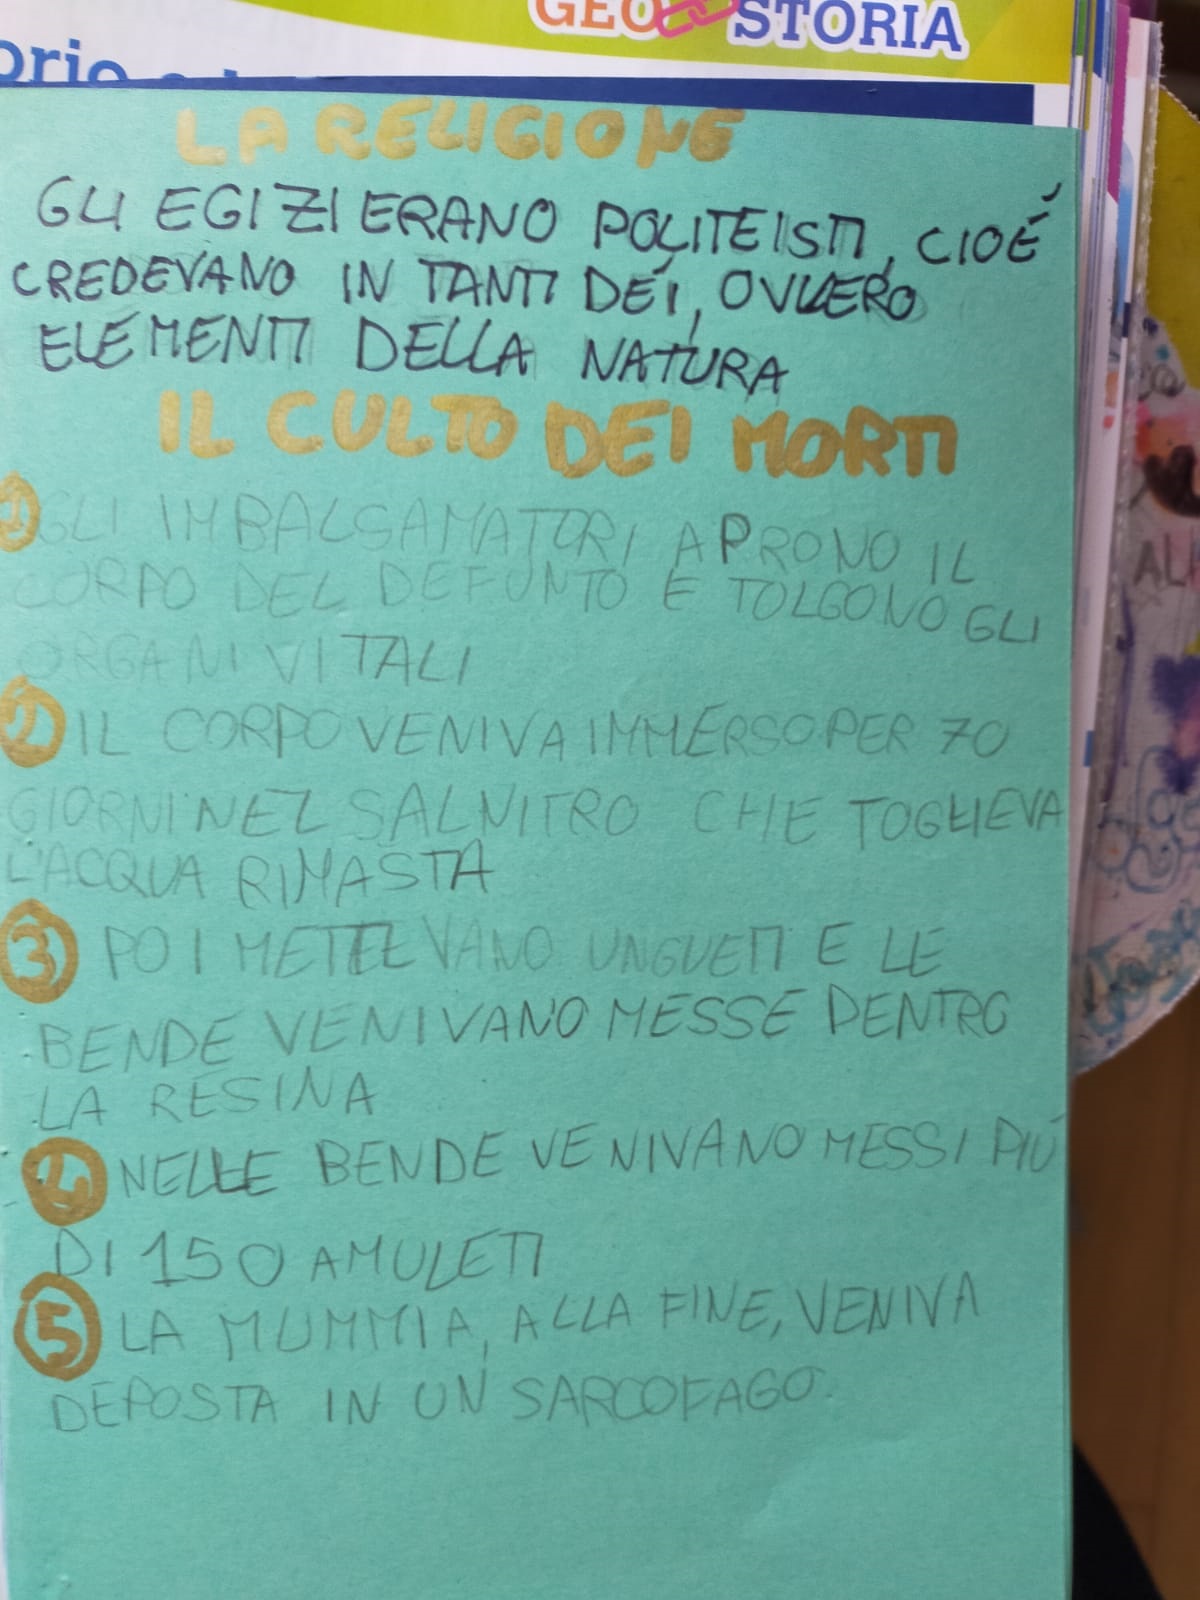 GEO STORIA
LA RELIGIONE
GLI EGIZI ERANO POLITEISTI, CIOÉ
CREDEVANO IN TANTI DEI, OVVERO
ELEMENTI DELLA NATURA
IL CULTO DEI MORTI
1 GLI IMBALSAMATORI APRONO IL
CORPO DEL DEFUNTO E TOLGONO GLI
ORGANI VITALI
2 IL CORPO VENIVA IMMERSO PER 70
GIORNI NEL SALNITRO CHE TOGLIEVA
L'ACQUA RIMASTA
3 POI METTEVANO UNGUETI E LE
BENDE VENIVANO MESSE DENTRO
LA RESINA
4 NELLE BENDE VENIVANO MESSI PIÚ
DI 150 AMULETI
5 LA MUMMIA, ALLA FINE, VENIVA
DEPOSTA IN UN SARCOFAGO.